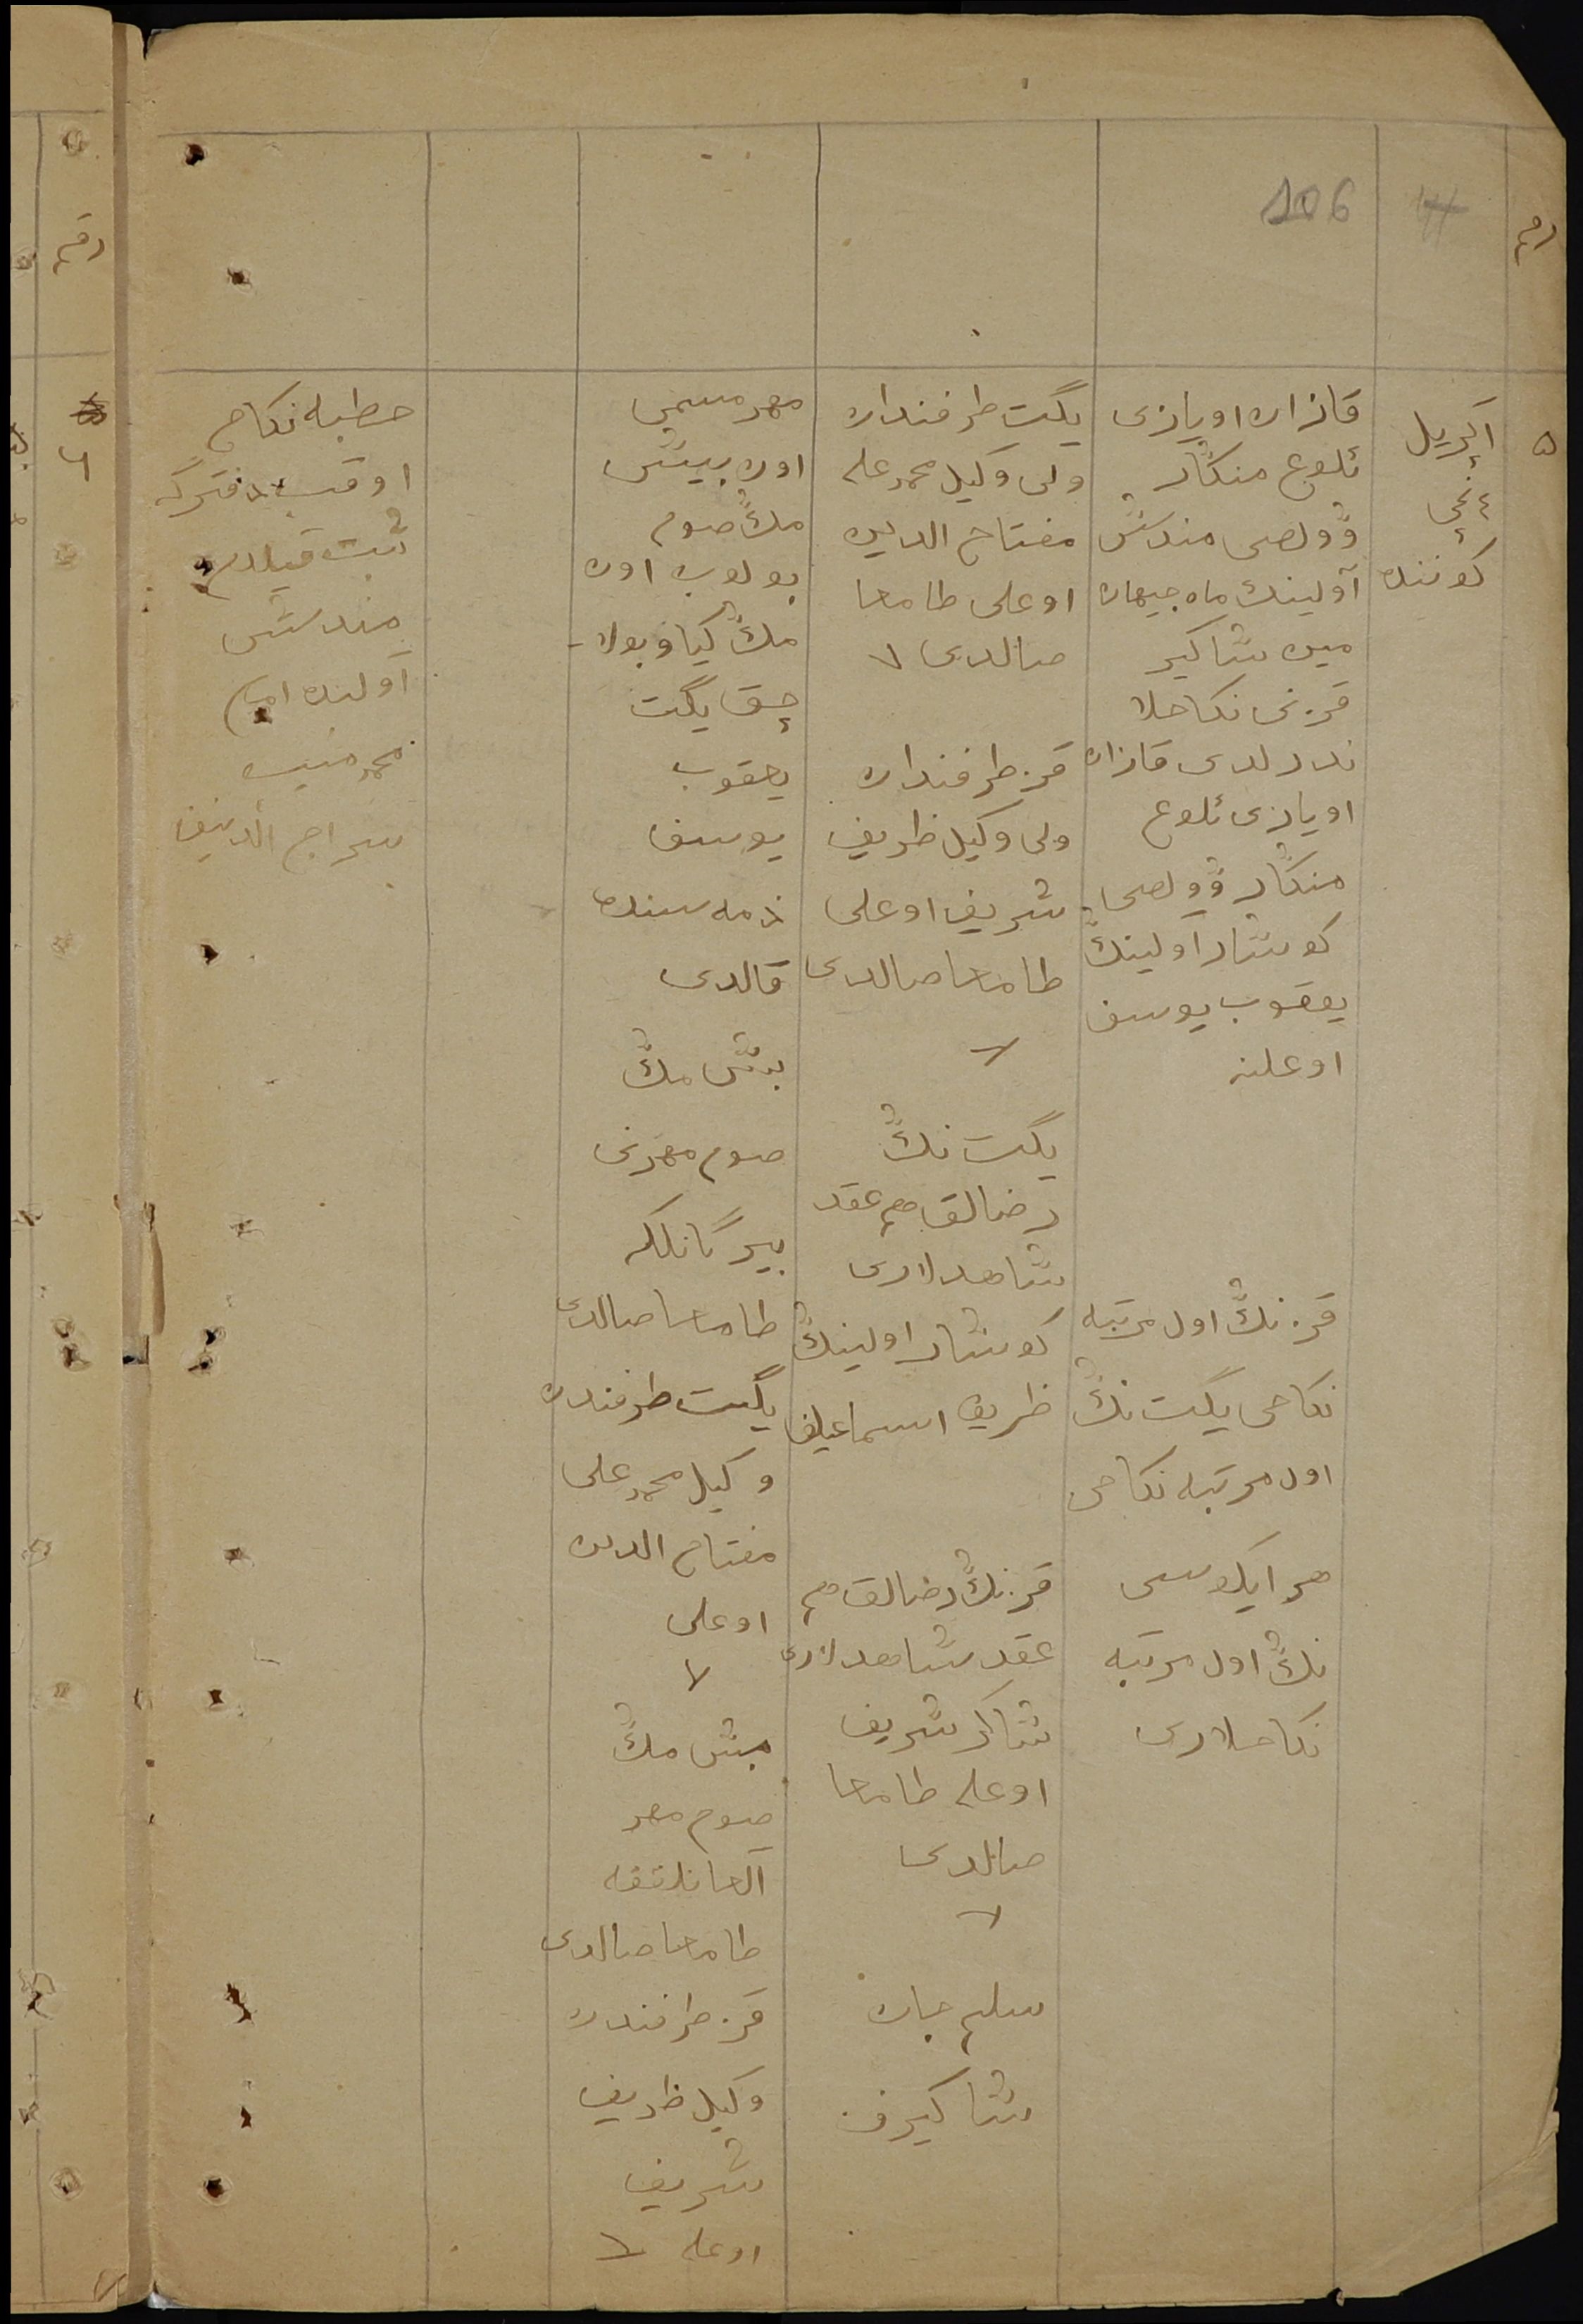 106
رقم
۵
اپریل
٤ نچی
کوننده
قازان اویازی
ئلوغ منگار
وولصی مندش
آولینڭ ماه جیهان
مین شاکیر
قزنی نکاحلا
ندردلدی قازان
اویازی ئلوغ
منگار وولصی
کوشار اولینڭ
یعقوب یوسف
اوغلنه
قزنڭ اول مرتبه
نکاحی یگت نڭ
اول مرتبه نکاحی
هر ایکوسی
نڭ اول مرتبه
نکاحلاری
یگت طرفندان
ولی وکیل محمدعلی
مفتاح الدین
اوغلی طامغا
صالدی
قز طرفندان
ولی وکیل ظریف
شریف اوغلی
طامغا صالدی
یگت نڭ
رضالق هم عقد
شاهدلاری
کوشار اولینڭ
ظریف اسماعیلف
قزنڭ رضالق هم
عقد شاهدلاری
شاکر شریف
اوغلی طامغا
صالدی
سلیم جان
شاکیرف
مهر مسمی
اون بیش
مڭ صوم
بولوب اون
مڭ کیاو بولا-
چق یگت
یعقوب
یوسف
ذمه سنده
قالدی
بش مڭ
صوم مهرنی
بیرگانلکگه
طامغا صالدی
یگت طرفندن
وکیل محمدعلی
مفتاح الدین
اوغلی
بش مڭ
صوم مهر
آلغانلققه
طامغا صالدی
قز طرفندن
وکیل ظریف
شریف
اوغلی
خطبه نکاح
اوقب دفترگه
ثبت قیلدم
مندش
آولنده امام
محمد منیب
سراج الدینف
رقم
٦